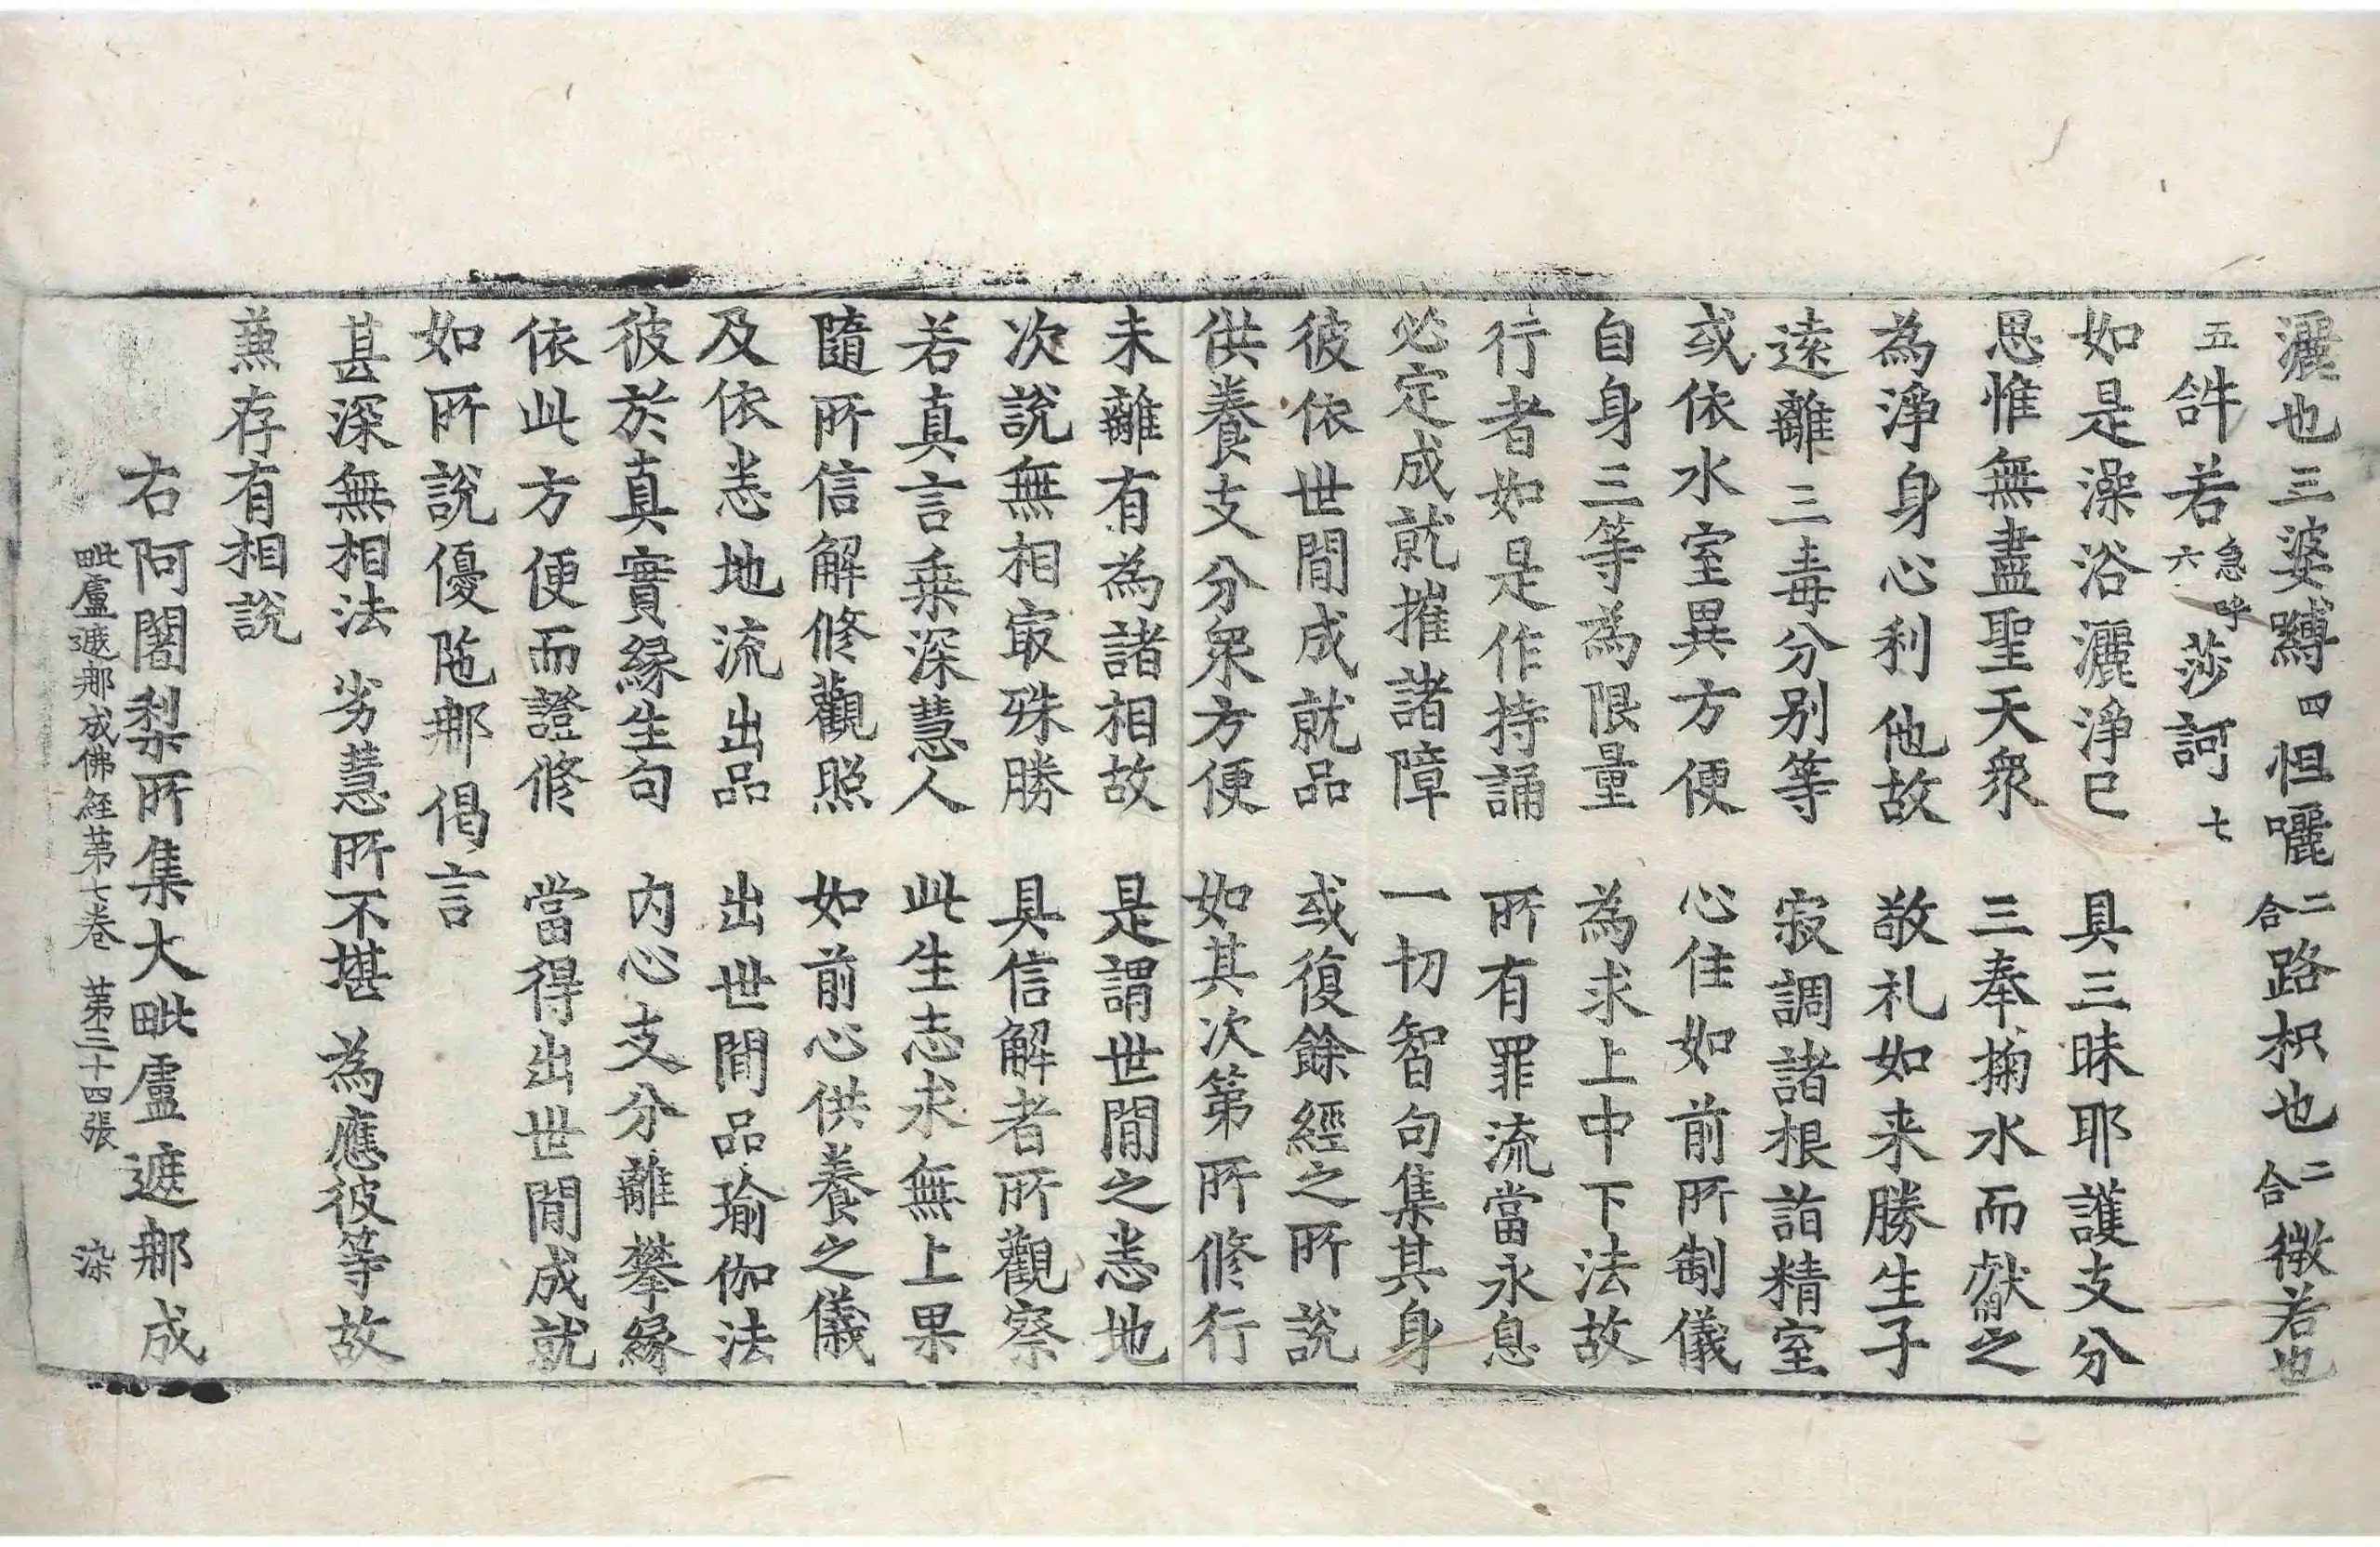 灑也三婆嚩四怛囉二合路枳也二合微若也
五𤙖若急呼六莎訶七
如是澡浴灑淨已　具三昧耶護支分
思惟無盡聖天衆　三奉掬水而獻之
為淨身心利他故　敬礼如来勝生子
遠離三毒分别等　寂調諸根詣精室
或依水室異方便　心住如前所制儀
自身三等為限量　為求上中下法故
行者如是作持誦　所有罪流當永息
必定成就摧諸障　一切智句集其身
彼依世間成就品　或復餘經之所說
供養支分衆方便　如其次第所修行
未離有為諸相故　是謂世間之悉地
次說無相㝡殊勝　具信解者所觀察
若真言乗深慧人　此生志求無上果
隨所信解修觀照　如前心供養之儀
及依悉地流出品　出世間品瑜伽法
彼於真實緣生句　内心支分離攀緣
依此方便而證修　當得出世間成就
如所說優陁那偈言
甚深無相法　劣慧所不堪　為應彼等故
兼存有相說
右阿闍梨所集大毗盧遮那成
毗盧遮那成佛經第七卷　第三十四張　染